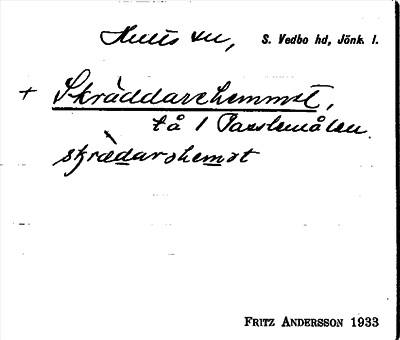 Hults sn, S. Vedbo hd, Jönk. l.
+ Skräddarehemmet,
tå / Passlemålen.
skrädarshemət
FRITZ ANDERSSON 1933